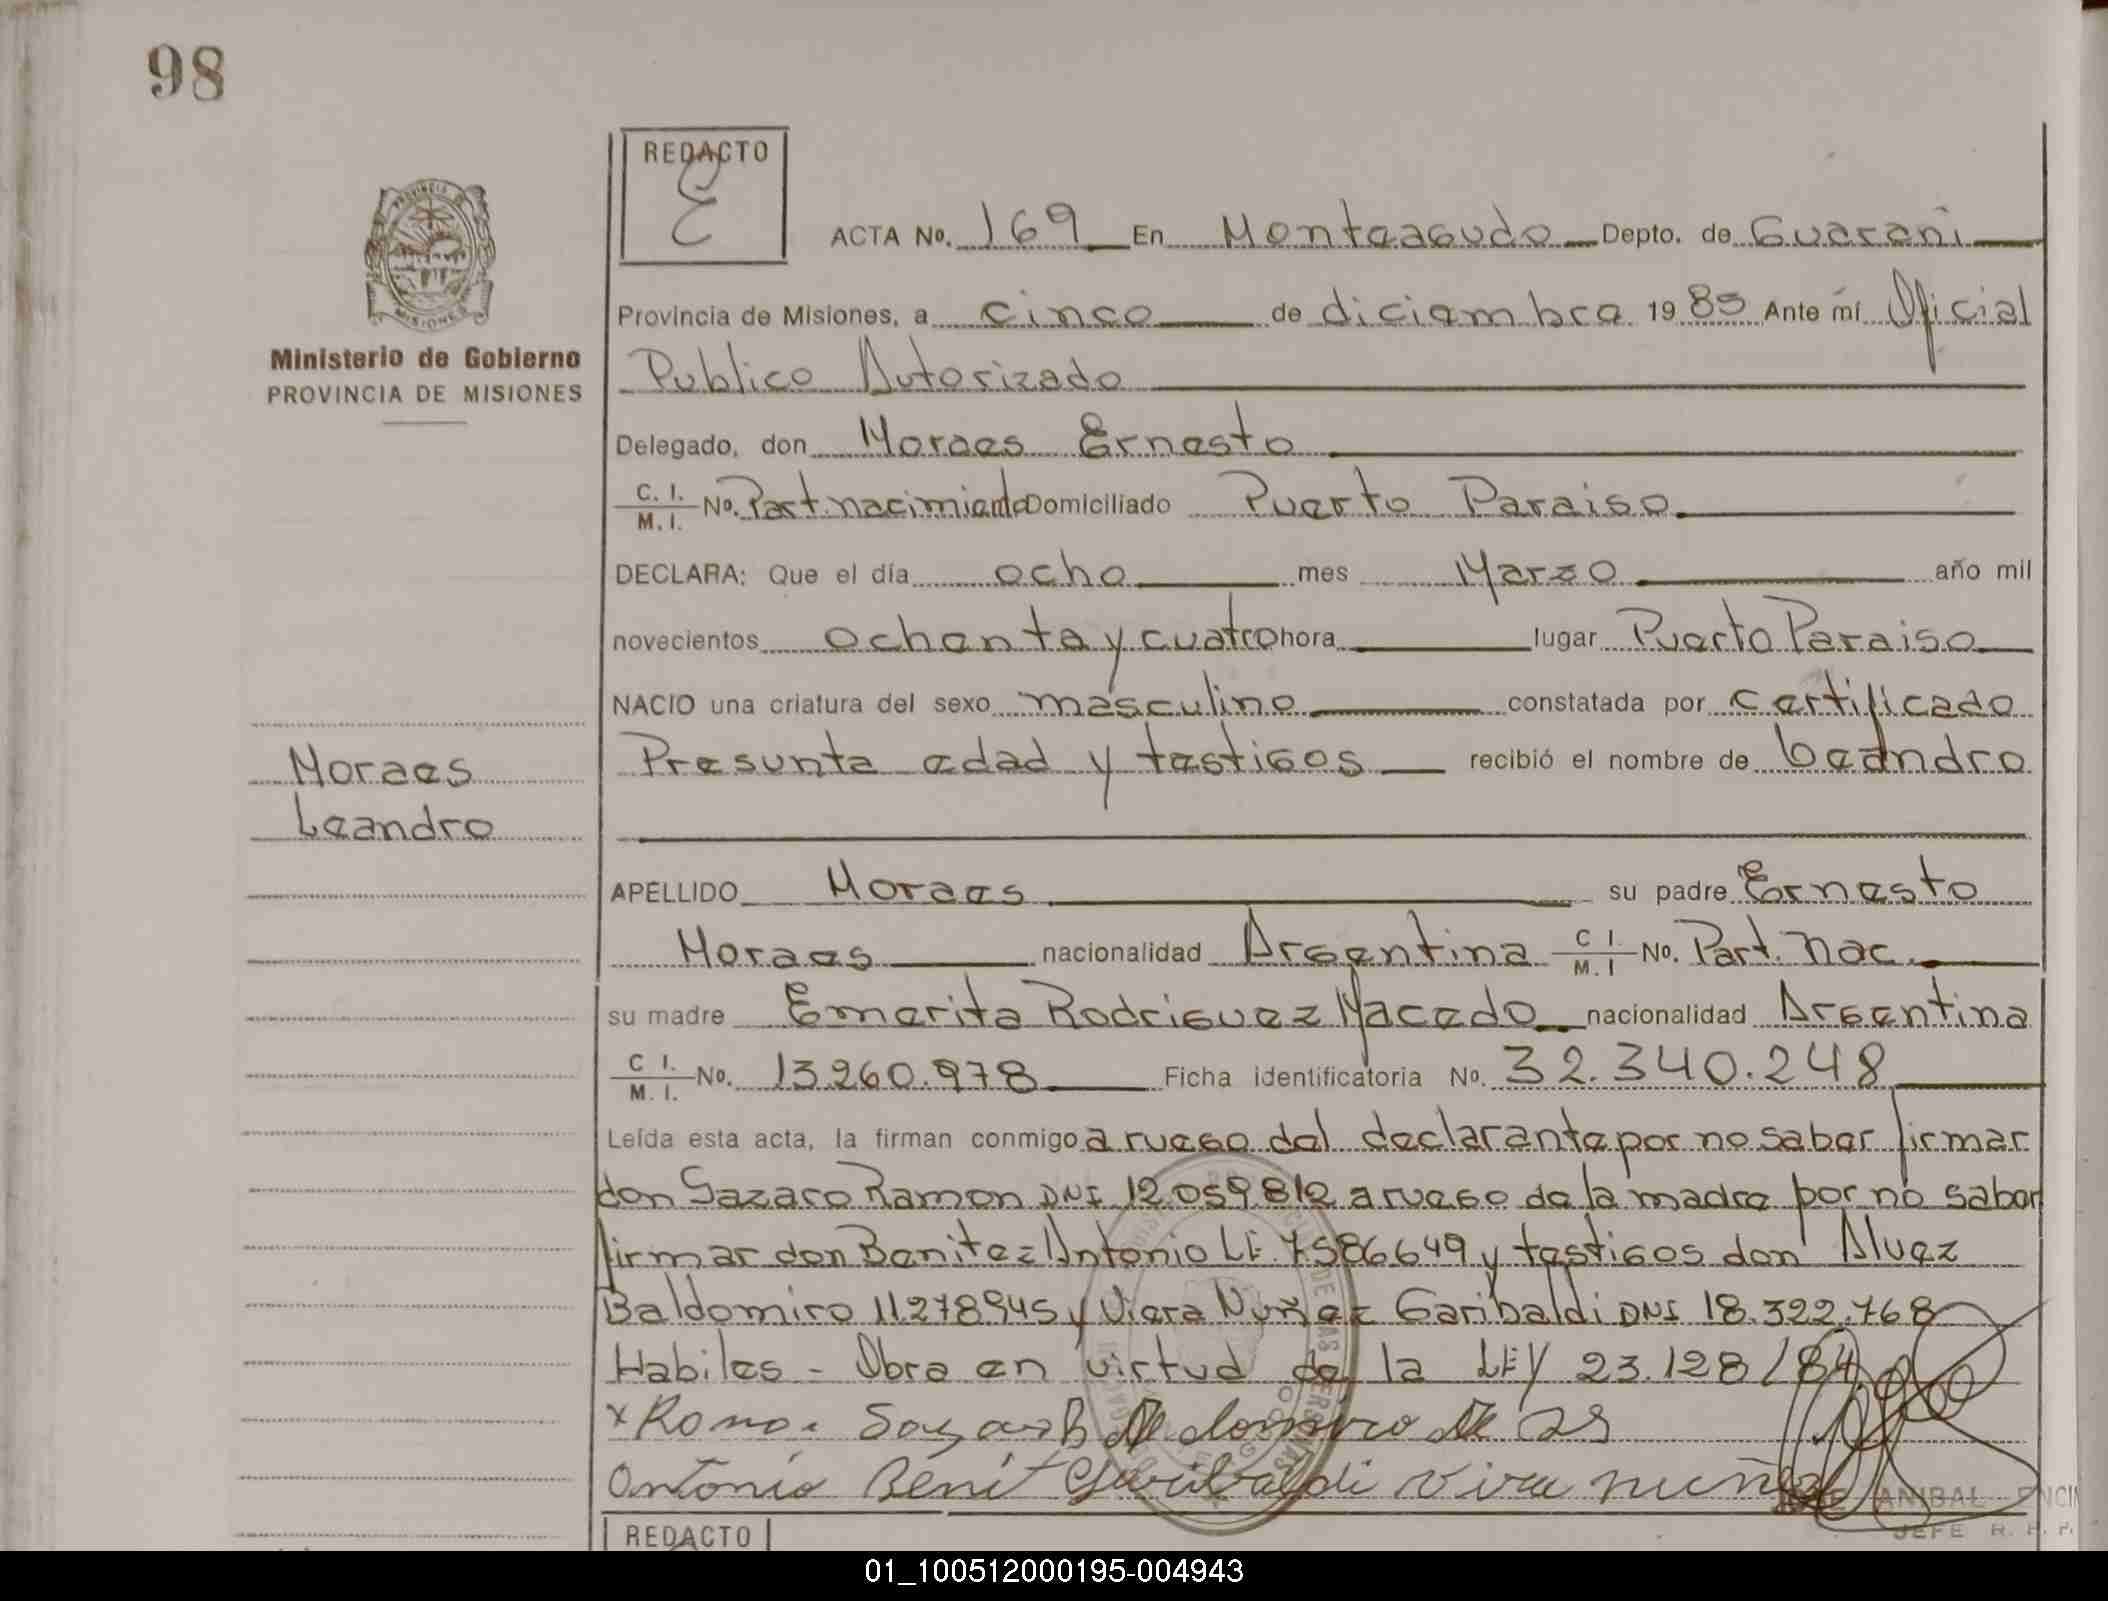 98
REDACTO
E
ACTA No. 169 En Monteagudo Depto. de Guarani
Provincia de Misiones, a cinco de diciembre 1985 Ante mí Oficial
Publico Autorizado
Ministerio de Gobierno
PROVINCIA DE MISIONES
Delegado, don Moraes Ernesto
C. I. / M. I. No. Part. nacimiento Domiciliado Puerto Paraiso
DECLARA: Que el día ocho mes Marzo año mil
novecientos ochenta y cuatro hora lugar Puerto Paraiso
NACIO una criatura del sexo masculino constatada por certificado
Presunta edad y testigos recibió el nombre de Leandro
Moraes
Leandro
APELLIDO Moraes su padre Ernesto
Moraes nacionalidad Argentina C I. / M. I No. Part. Nac.
su madre Emerita Rodriguez Macedo nacionalidad Argentina
C I. / M. I. No. 13.260.978 Ficha identificatoria No. 32.340.248
Leída esta acta, la firman conmigo a ruego del declarante por no saber firmar
don Sazaro Ramon DNI 12.059.812 a ruego de la madre por no saber
firmar don Benitez Antonio LE. 7.586.649 y testigos don Alvez
Baldomiro 11.278.945 y Viera Nuñez Garibaldi DNI 18.322.768
Habiles - Obra en virtud de la LEY 23.128/84
Antonio Benit Garibaldi Vira nuñez
ANIBAL ENCIN
JEFE R. P. P.
REDACTO
01_100512000195-004943